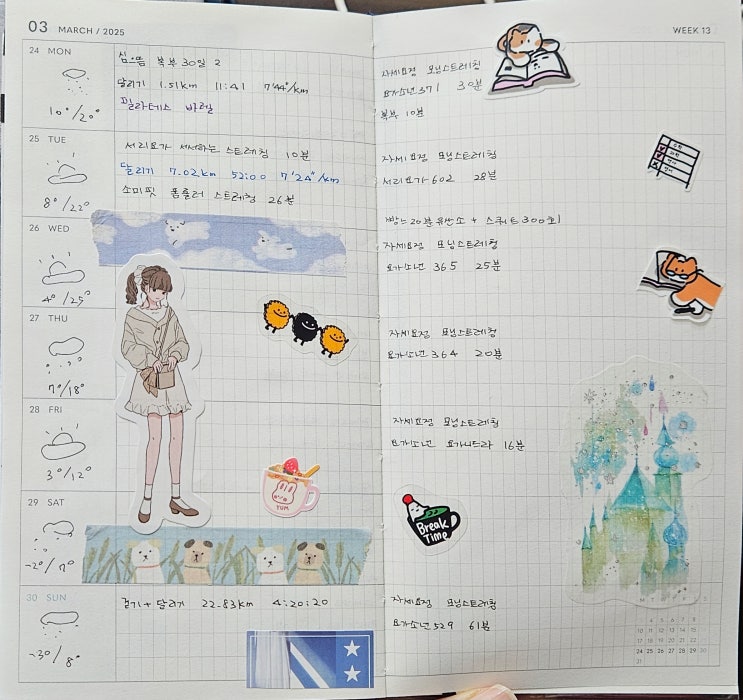 03 MARCH / 2025
24 MON
심으뜸 복부 30일 2
달리기 1.51km 11:41 7'44"/km
필라테스 바렐
10°/20°
25 TUE
서리요가 서서하는 스트레칭 10분
달리기 7.02km 52:00 7'24"/km
소미핏 폼롤러 스트레칭 26분
8°/22°
26 WED
4°/25°
27 THU
7°/18°
28 FRI
3°/12°
YUM
29 SAT
-2°/7°
30 SUN
걷기+달리기 22.83km 4:20:20
-3°/8°
WEEK 13
자세요정 모닝스트레칭
요가소년 371 30분
복부 10분
자세요정 모닝스트레칭
서리요가 602 28분
빵느 20분 유산소 + 스쿼트 300회
자세요정 모닝스트레칭
요가소년 365 25분
자세요정 모닝스트레칭
요가소년 364 20분
자세요정 모닝스트레칭
요가소년 요가니드라 16분
Break
Time
자세요정 모닝스트레칭
요가소년 529 61분
M T W T F S S
4 5 6 7 8
10 11 12 13 14 15
17 18 19 20 21 22
24 25 26 27 28 29 30
31